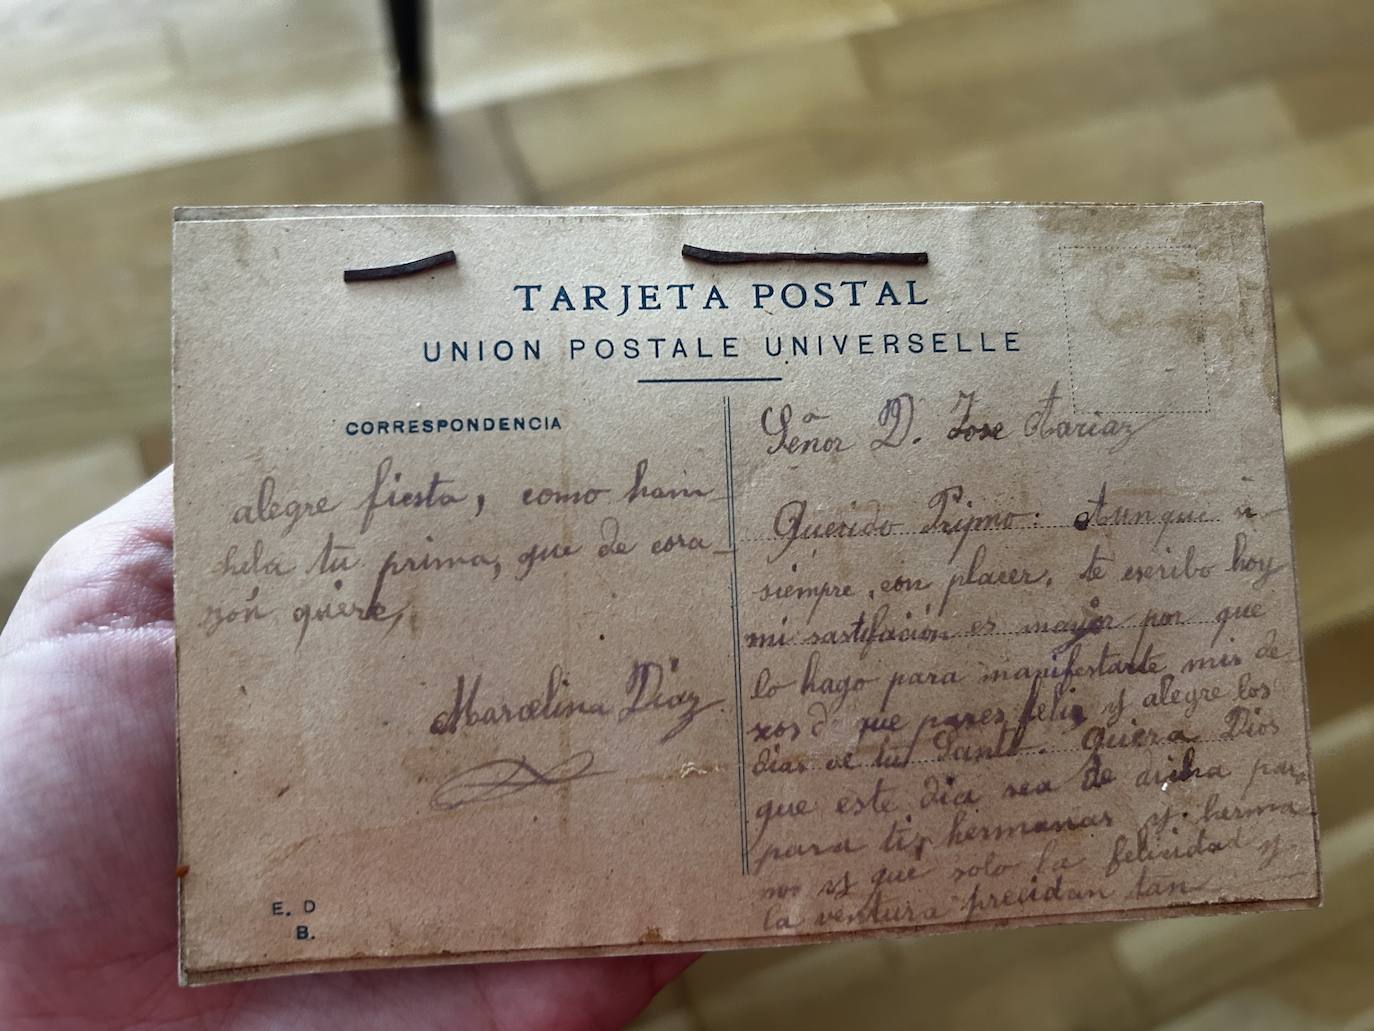 TARJETA POSTAL
UNION POSTALE UNIVERSELLE
CORRESPONDENCIA
Señor D. Jose
Querido Pripmo: Aunque
siempre, con placer, te escribo hoy
mi sastifación es mayor por que
lo hago para manifestarte mis de
xos de que pases feliz y alegre los
dias de tu Santo. Quiera Dios
que este dia sea de dicha
para ti, hermanas y herma
nos y que solo la felicidad y
la ventura precidan tan
alegre fiesta, como han
hela tu prima, que de cora
zón quiere,
Marcelina Diaz
E. D
B.